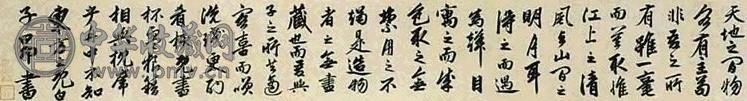 天地之間物
各有主苟
非吾之所
有雖一毫
而莫取惟
江上之清
風與山間之
明月耳
得之而
為聲目
之而成
色取之無
禁用之不
竭是造物
者之無盡
藏也而吾與
子之所共適
客喜而笑
洗盞更酌
肴核既盡
杯盤狼藉
相與枕藉
乎舟中不知
東方之既白
子昂書
中华收藏网